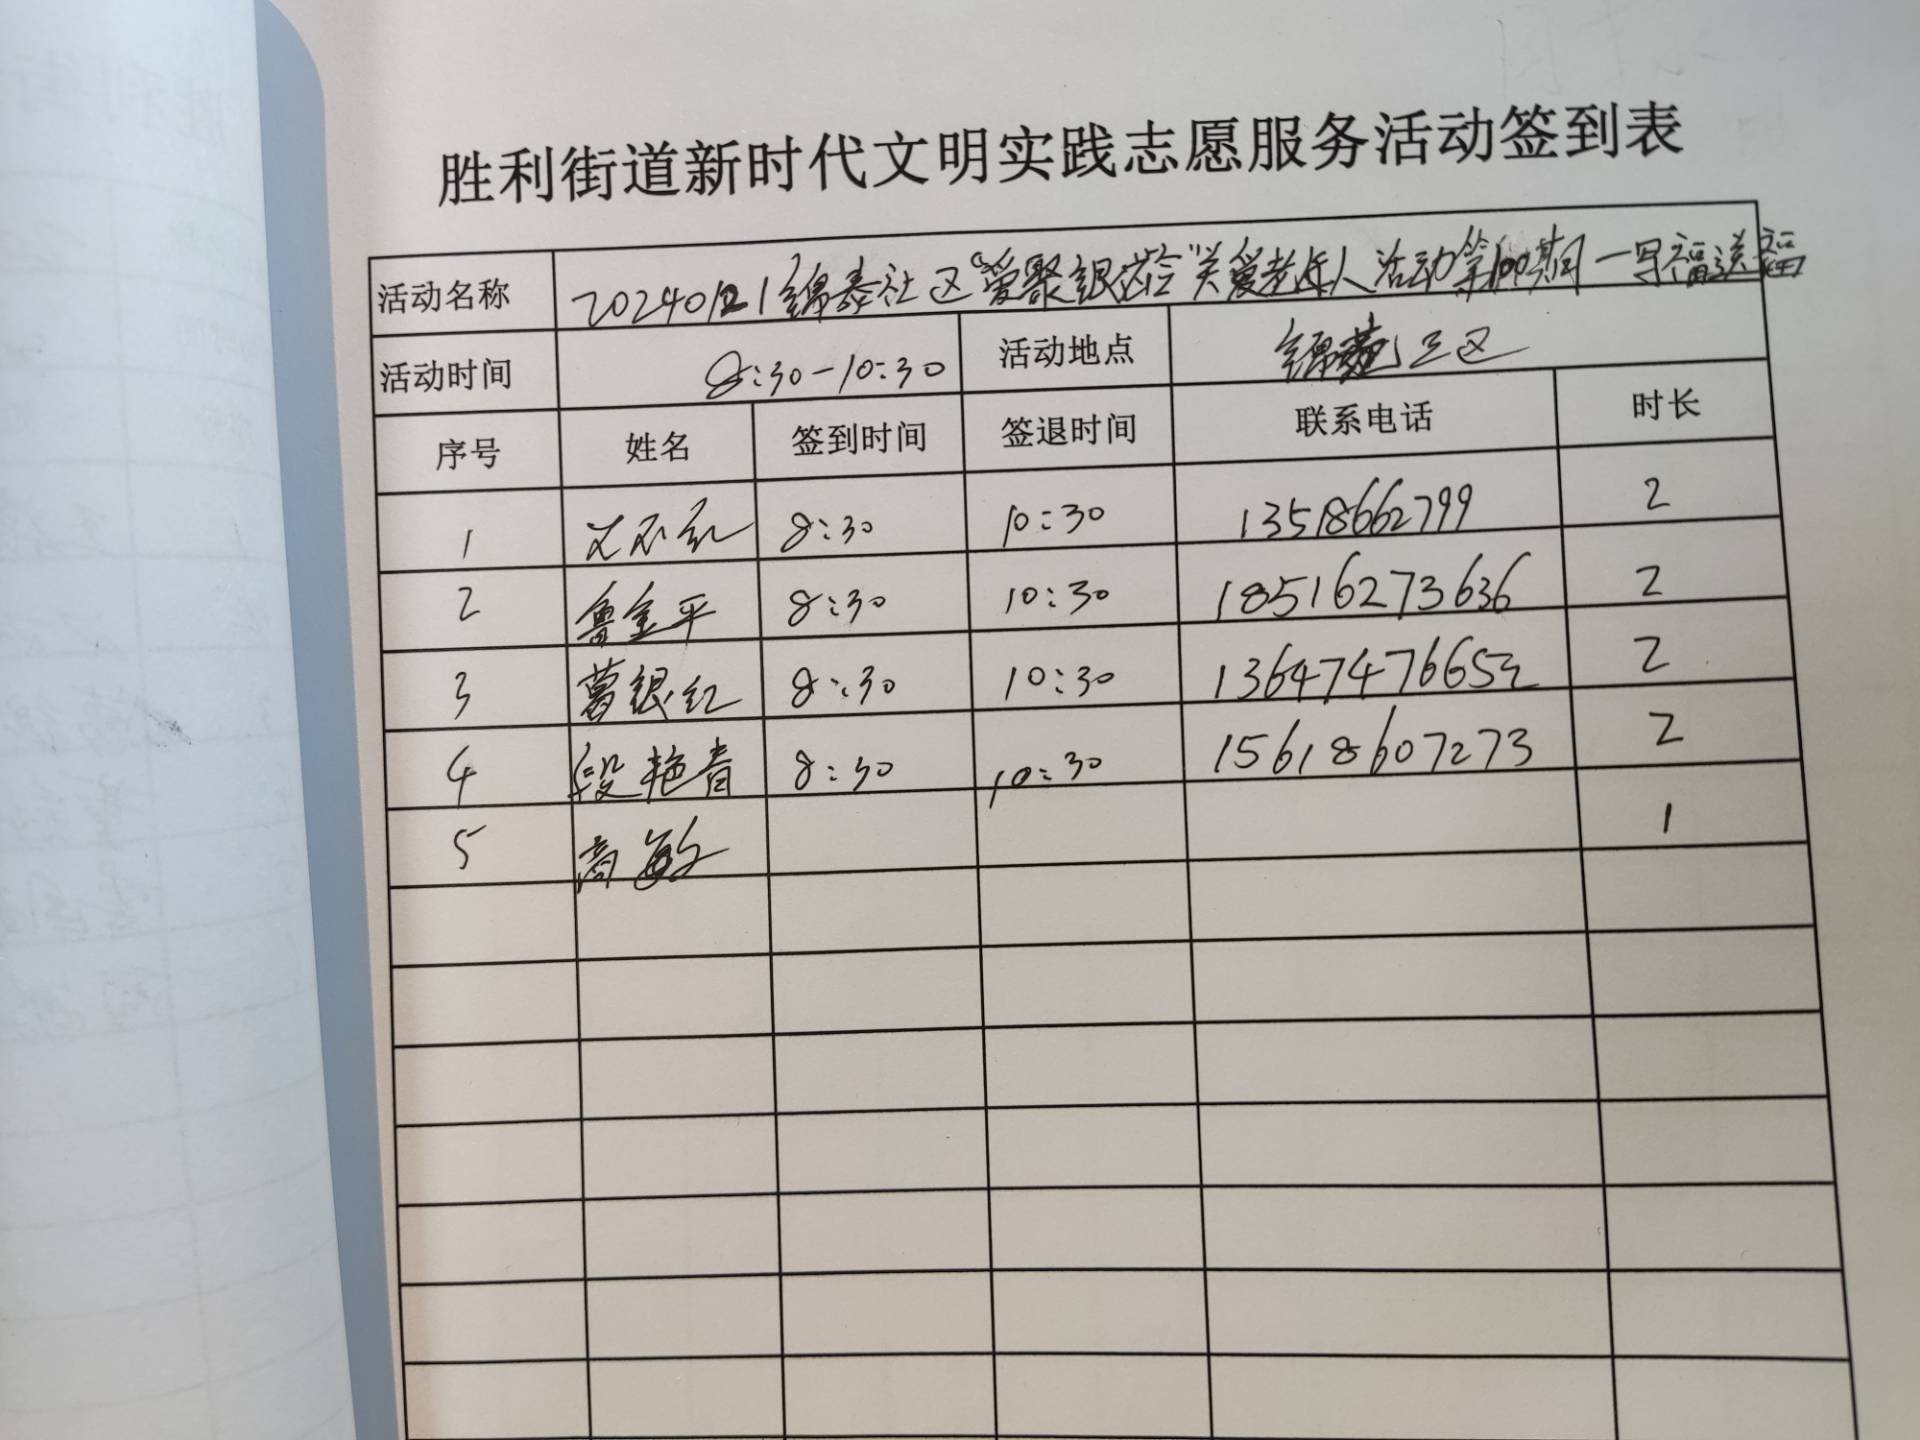 胜利街道新时代文明实践志愿服务活动签到表
活动名称 20240121锦泰社区“爱聚银龄”关爱老年人活动第100期一写福送福
活动时间 8:30-10:30 活动地点 锦苑三区
序号 姓名 签到时间 签退时间 联系电话 时长
1 8:30 10:30 13518662799 2
2 鲁金平 8:30 10:30 18516273636 2
3 葛银红 8:30 10:30 2
4 段艳青 8:30 10:30 15618607273 2
5 高敏 1